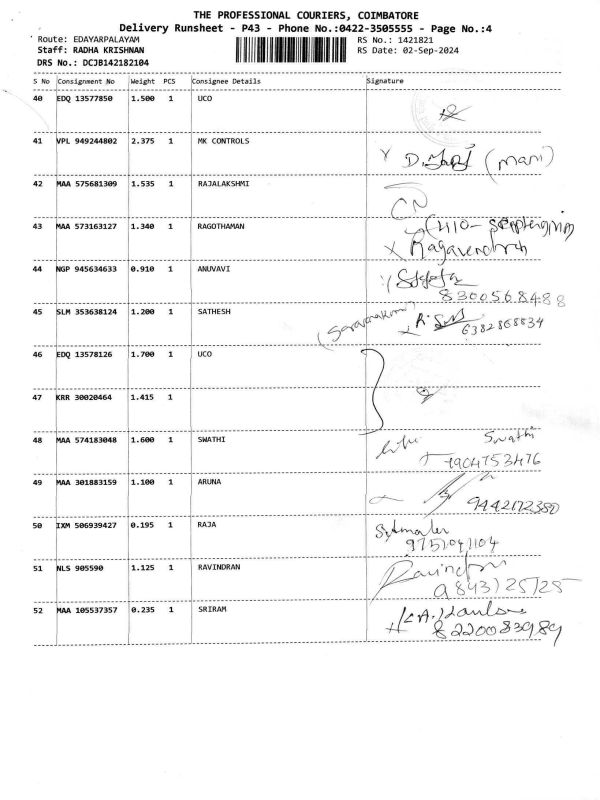 THE PROFESSIONAL COURIERS, COIMBATORE
Delivery Runsheet - P43 - Phone No.:0422-3505555 - Page No.:4
Route: EDAYARPALAYAM RS No.: 1421821
Staff: RADHA KRISHNAN RS Date: 02-Sep-2024
DRS No.: DCJB142182104
S No Consignment No Weight PCS Consignee Details Signature
40 EDQ 13577850 1.500 1 UCO
41 VPL 949244802 2.375 1 MK CONTROLS
(mani)
42 MAA 575681309 1.535 1 RAJALAKSHMI
CN
43 MAA 573163127 1.340 1 RAGOTHAMAN
X Ragavendrah
44 NGP 945634633 0.910 1 ANUVAVI
8300568488
45 SLM 353638124 1.200 1 SATHESH
6382868834
46 EDQ 13578126 1.700 1 UCO
47 KRR 30020464 1.415 1
48 MAA 574183048 1.600 1 SWATHI
Swathi
7904753476
49 MAA 301883159 1.100 1 ARUNA
9442172380
50 IXM 506939427 0.195 1 RAJA
9751041104
51 NLS 905590 1.125 1 RAVINDRAN
9843125725
52 MAA 105537357 0.235 1 SRIRAM
8220083989